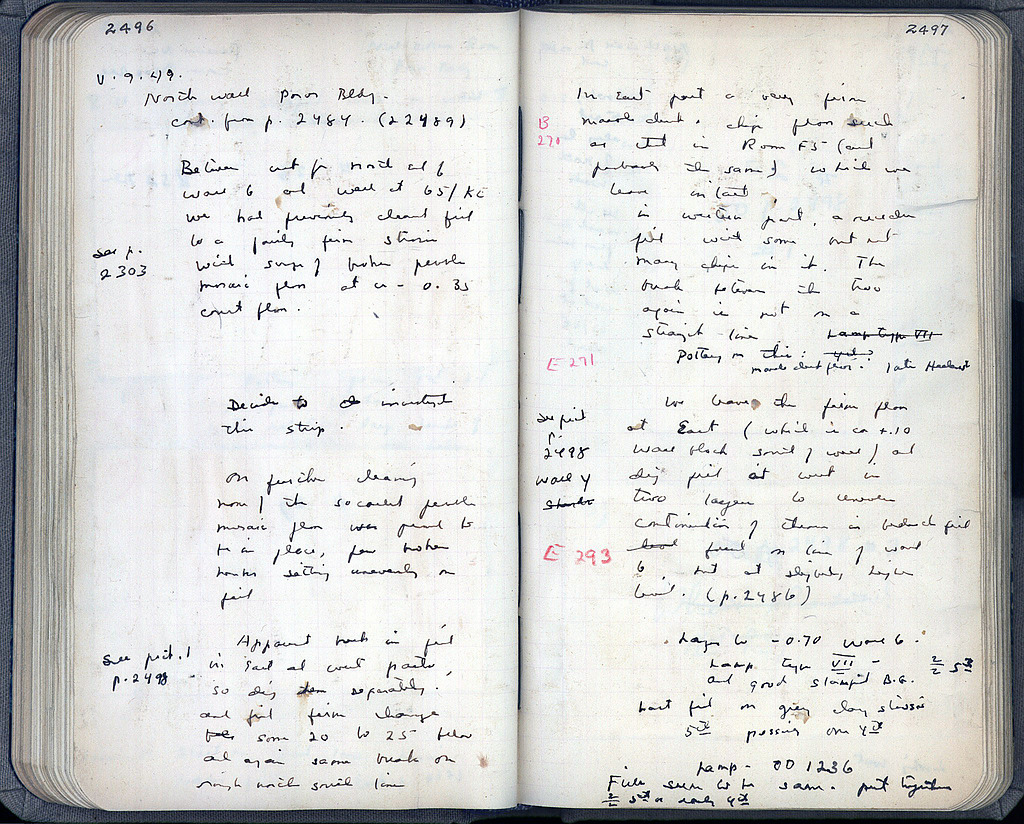 2496
V. 9. 49.
North wall Poros Bldg.
cont. from p. 2484. (22489)
Between cut for north end of
wall 6 and wall at 65/ΚΕ
we had previously cleared fill
to a fairly firm stratum
see p.
2303
with some of broken pebble
mosaic floor at ca - 0.35
court floor.
Decide to investigate
this strip.
On further cleaning
none of the so called pebble
mosaic floor was found to
be in place, few broken
hunks setting unevenly on
fill
Apparent break in fill
See pict. 1
p. 2498
in East and west parts,
so dig them separately.
and fill form change
some 20 to 25 below
and again same break on
rough north south line
2497
In East part a very firm
B
270
marble dust & chip floor such
as that in Room F5 (and
probably the same) which we
leave intact.
in western part, a reddish
fill with some, but not
many chips in it. The
break between the two
again is not on a
straight line Lamp type VII
E 271
Pottery on this:
marble dust floor: late
We leave the firm floor
see pict
p.
2498
at East (which is ca +.10
wall block south of wall) and
wall y
dig fill at west in
two layers to uncover
continuation of in
E 293
found on line of wall
6, but at slightly higher
level. (p. 2486)
Layer to -0.70 wall 6.
Lamp type VII - 2/2 5th
and good stamped B.G.
Last fill on grey clay stratum
5th passing on 4th
Lamp - OD 1236
Fill seem to be same. put together
2/2 5th or early 4th